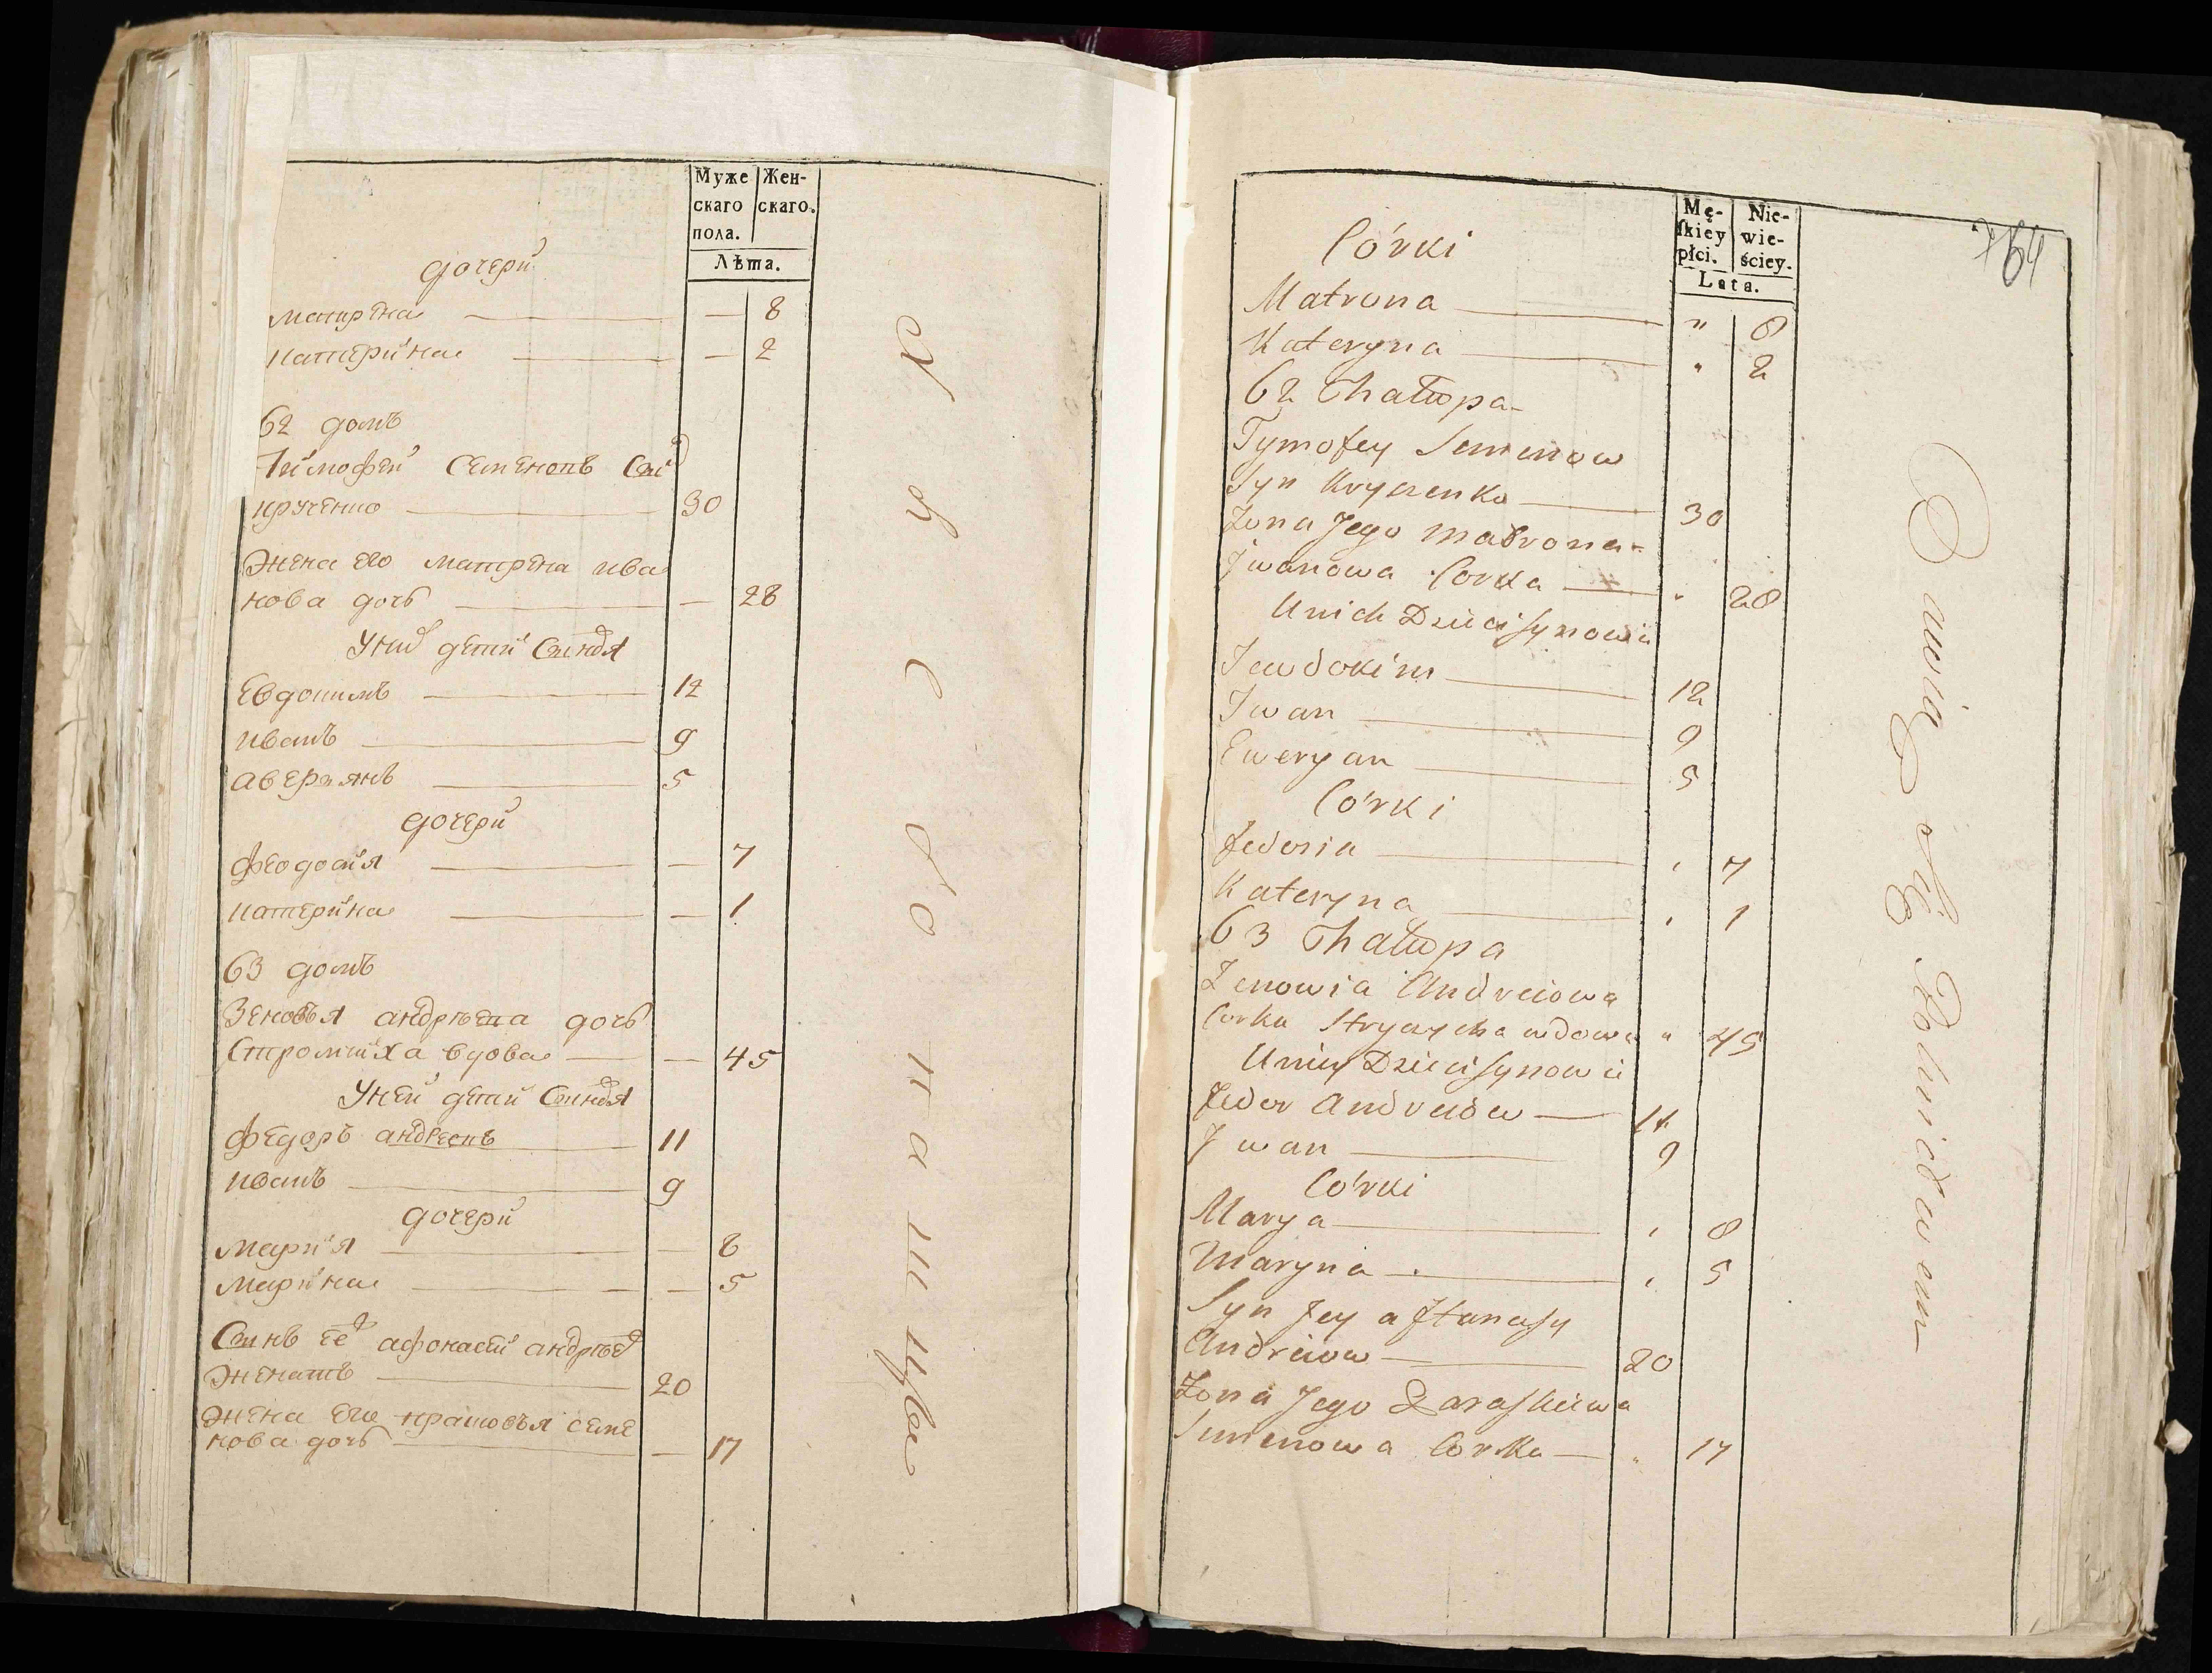 Муже
скаго
пола.
Жен-
скаго.
Лѣта.
дочери
матрѣна — — 8
катерина — — 2
62 домъ
Тимофей Семеновъ Сынъ
крученко — 30
Жена его матрена ива
нова дочь — — 28
У них детей Сыновя
Евдокимъ — 12
иванъ — 9
аверьянъ — 5
дочери
феодосия — — 7
катерина — — 1
63 домъ
Зеновья андрѣева дочь
вдова — — 45
У ней детей Сыновя
федоръ андреевъ — 11
иванъ — 9
дочери
мария — — 8
марина — — 5
Сынъ её афонасей андрѣев
женатъ — 20
жена его прасковья семе
нова дочь — — 17
764
Mę-
skiey
płci.
Nie-
wie-
ściey.
Lata.
Córki
Matrona — " 8
Kateryna — " 2
62 Chałupa
Tymofey Semenow
Syn Kryczenko — 30
Żona Jego matrona
Jwanowa Corka — " 28
U nich Dzieci Synowie
Jewdokim — 12
Jwan — 9
Eweryan — 5
Córki
Fedosia — " 7
Kateryna — " 1
63 Chałupa
Zenowia Andreiowa
Corka wdowa " 45
U niey Dzieci Synowie
Fedor Andreiow — 11
Jwan — 9
Córki
Marya — " 8
Maryna — " 5
Syn Jey Aftanasy
Andreiow — 20
Żona Jego Paraskiewa
Semenowa Corka — " 17